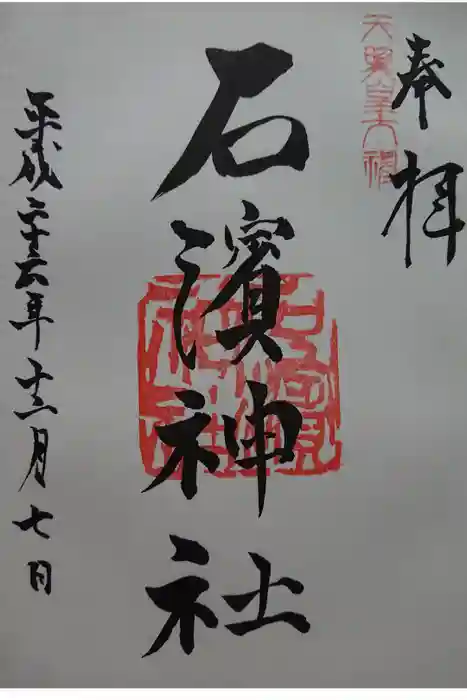 奉拝
天照皇大神
石濱神社
平成二十六年十二月七日